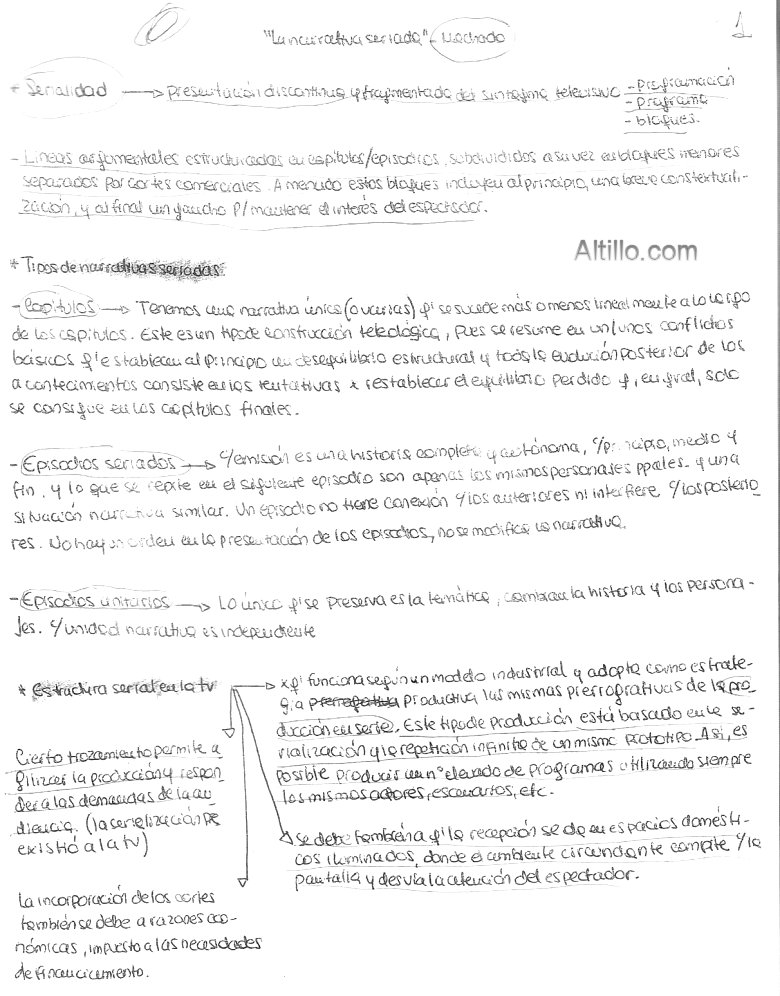 "La narrativa seriada" - Machado
1
* Serialidad → presentación discontinua y fragmentada del sintagma televisivo - Programación
- programa
- bloques.
- Líneas argumentales estructuradas en capítulos/episodios, subdivididos a su vez en bloques menores
separados por cortes comerciales. A menudo estos bloques incluyen al principio, una breve constextuali-
zación, y al final un gancho p/ mantener el interés del espectador.
Altillo.com
* Tipos de narrativas seriadas:
- Capítulos → Tenemos una narrativa única (o varias) q' se sucede más o menos linealmente a lo largo
de los capítulos. Este es un tipo de construcción teleológica, pues se resume en un/unos conflictos
básicos q' establecen al principio un desequilibrio estructural y toda la evolución posterior de los
acontecimientos consiste en las tentativas x restablecer el equilibrio perdido q', en gral, solo
se consigue en los capítulos finales.
- Episodios seriados → c/emisión es una historia completa y autónoma, c/principio, medio y
fin, y lo que se repite en el siguiente episodio son apenas los mismos personajes ppales. y una
situación narrativa similar. Un episodio no tiene conexión c/los anteriores ni interfiere c/los posterio-
res. No hay un orden en la presentación de los episodios, no se modifica la narrativa.
- Episodios unitarios → Lo único q' se preserva es la temática, cambian la historia y los persona-
jes. c/unidad narrativa es independiente
* Estructura serial en la tv
→ x q' funciona según un modelo industrial y adopta como estrate-
gia prerrogativa productiva las mismas prerrogrativas de la pro-
ducción en serie. Este tipo de producción está basado en la se-
rialización y la repetición infinita de un mismo prototipo. Así, es
posible producir un nº elevado de programas utilizando siempre
los mismos actores, escenarios, etc.
Cierto trozamiento permite a-
gilizar la producción y respon-
der a las demandas de la au-
diencia. (la serialización pre
existió a la tv)
se debe también a q' la recepción se da en espacios domésti-
cos iluminados, donde el ambiente circundante compite c/la
pantalla y desvía la atención del espectador.
La incorporación de los cortes
también se debe a razones eco-
nómicas, impuesto a las necesidades
de financiamiento.